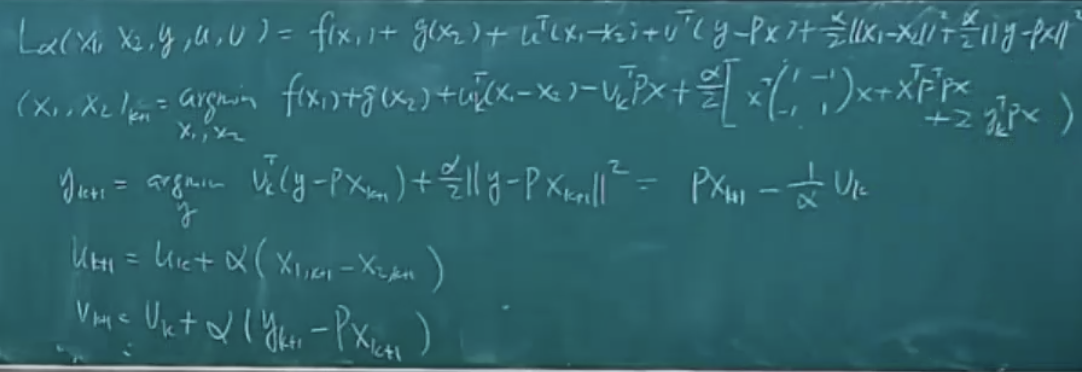 Lα(x₁, x₂, y, u, v) = f(x₁) + g(x₂) + uᵀ(x₁-x₂) + vᵀ(y-Px) + α/2||x₁-x₂||² + α/2||y-Px||²
(x₁, x₂)ₖ₊₁ = argmin_{x₁, x₂} f(x₁)+g(x₂)+uₖᵀ(x₁-x₂)-vₖᵀPx+α/2[xᵀ(1 -1; -1 1)x+xᵀPᵀPx+2yₖᵀPx)
yₖ₊₁ = argmin_y vₖᵀ(y-Pxₖ₊₁)+α/2||y-Pxₖ₊₁||² = Pxₖ₊₁ - 1/α vₖ
uₖ₊₁ = uₖ + α(x₁,ₖ₊₁ - x₂,ₖ₊₁)
vₖ₊₁ = vₖ + α(yₖ₊₁ - Pxₖ₊₁)